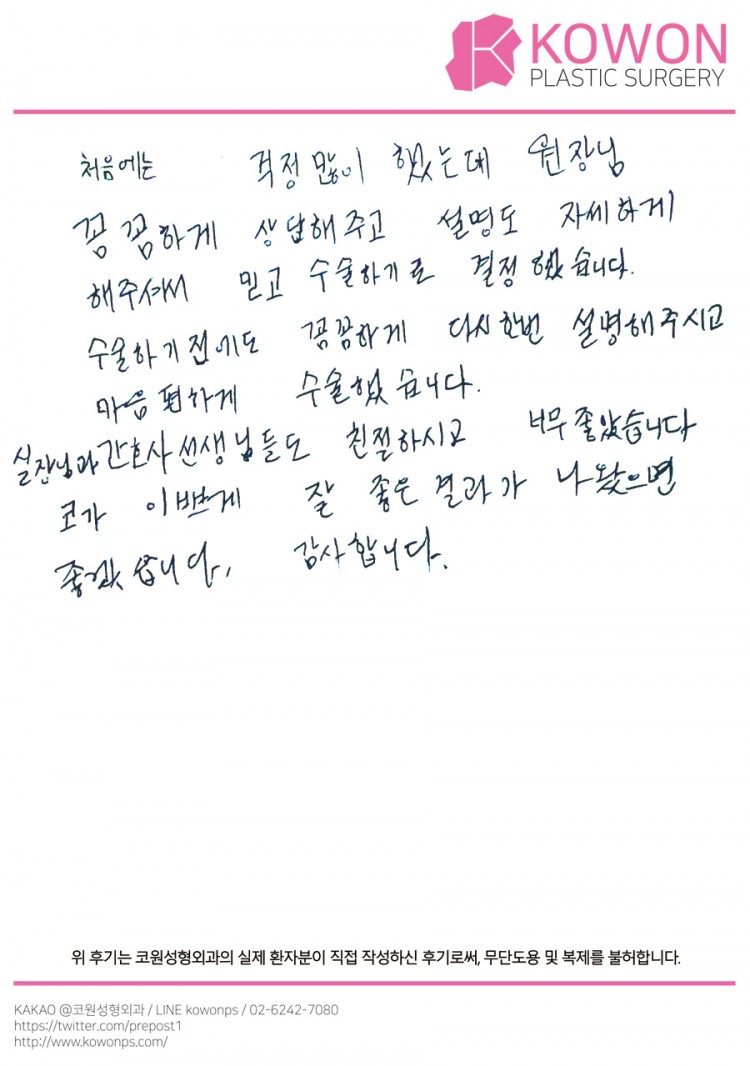 KOWON
PLASTIC SURGERY
처음에는 걱정 많이 했는데 원장님
꼼꼼하게 상담해주고 설명도 자세하게
해주셔서 믿고 수술하기로 결정했습니다.
수술하기 전에도 꼼꼼하게 다시한번 설명해주시고
마음 편하게 수술했습니다.
실장님과 간호사 선생님들도 친절하시고 너무 좋았습니다
코가 이쁘게 잘 좋은 결과가 나왔으면
좋겠습니다. 감사합니다.
위 후기는 코원성형외과의 실제 환자분이 직접 작성하신 후기로써, 무단도용 및 복제를 불허합니다.
KAKAO @코원성형외과 / LINE kowonps / 02-6242-7080
https://twitter.com/prepost1
http://www.kowonps.com/